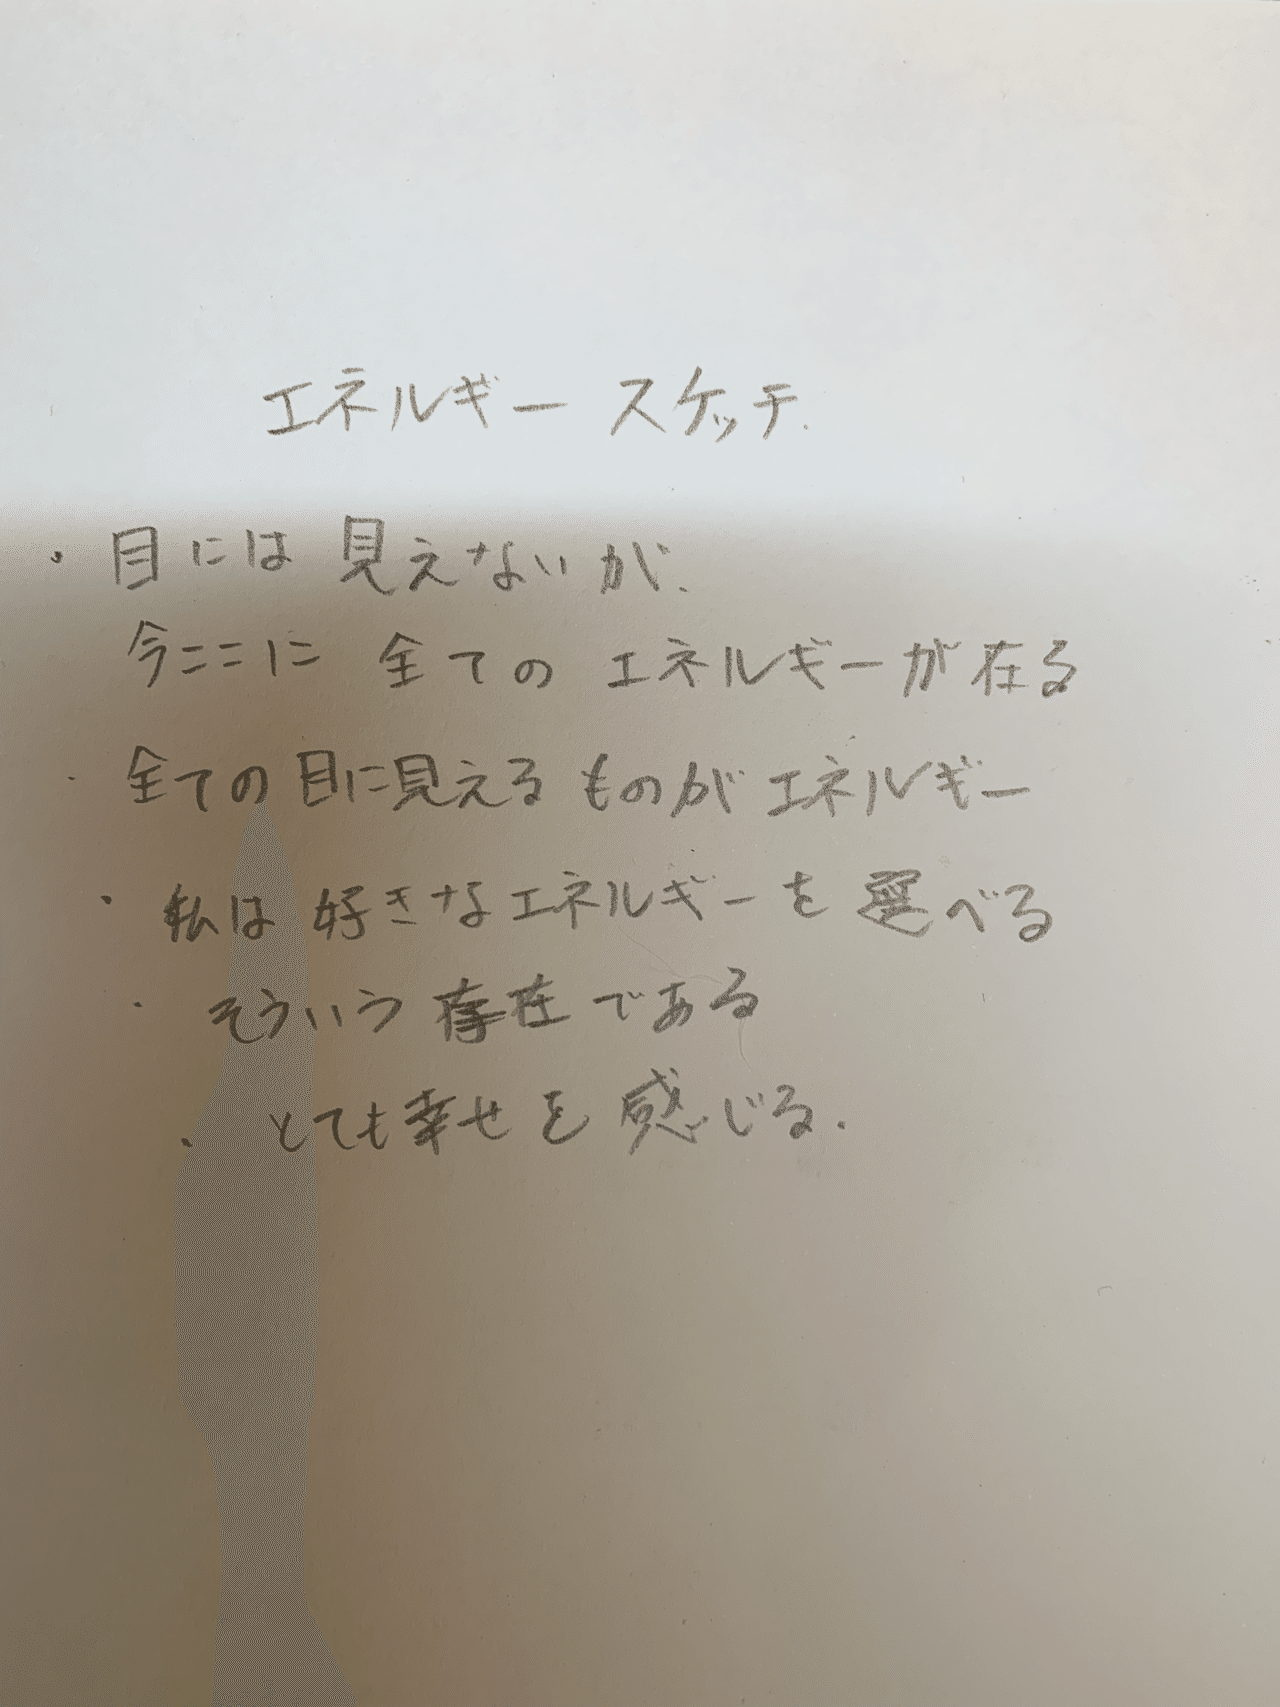 エネルギー スケッチ.
・目には 見えないが、
今ここに 全ての エネルギーが在る
・全ての 目に見える ものが エネルギー
・私は 好きな エネルギーを 選べる
・そういう 存在 である
・とても 幸せを 感じる.